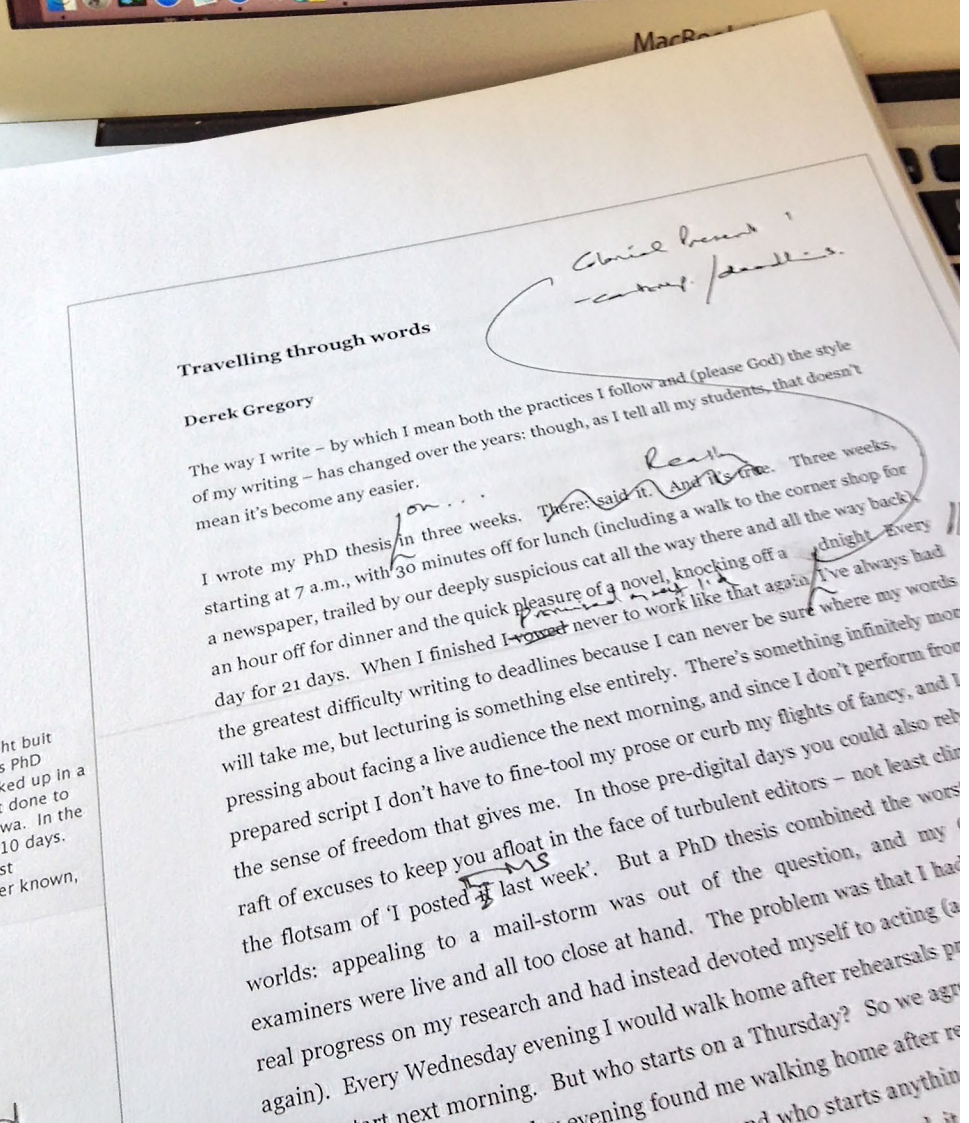 MacBook
Colonial Present
/deadlines.
Travelling through words
Derek Gregory
The way I write – by which I mean both the practices I follow and (please God) the style
of my writing – has changed over the years: though, as I tell all my students, that doesn't
mean it's become any easier.
on...
Really
I wrote my PhD thesis in three weeks. There: said it. And it's true. Three weeks,
starting at 7 a.m., with 30 minutes off for lunch (including a walk to the corner shop for
a newspaper, trailed by our deeply suspicious cat all the way there and all the way back),
an hour off for dinner and the quick pleasure of a novel, knocking off a dnight. Every
promised myself I'd
day for 21 days. When I finished I vowed never to work like that again. I've always had
the greatest difficulty writing to deadlines because I can never be sure where my words
will take me, but lecturing is something else entirely. There's something infinitely mor
pressing about facing a live audience the next morning, and since I don't perform from
prepared script I don't have to fine-tool my prose or curb my flights of fancy, and I
the sense of freedom that gives me. In those pre-digital days you could also rely
raft of excuses to keep you afloat in the face of turbulent editors – not least clin
MS
the flotsam of 'I posted it last week'. But a PhD thesis combined the worst
worlds: appealing to a mail-storm was out of the question, and my
examiners were live and all too close at hand. The problem was that I had
real progress on my research and had instead devoted myself to acting (a
again). Every Wednesday evening I would walk home after rehearsals pr
art next morning. But who starts on a Thursday? So we agr
evening found me walking home after re
nd who starts anythin
ht buit
s PhD
ked up in a
t done to
wa. In the
10 days.
st
er known,